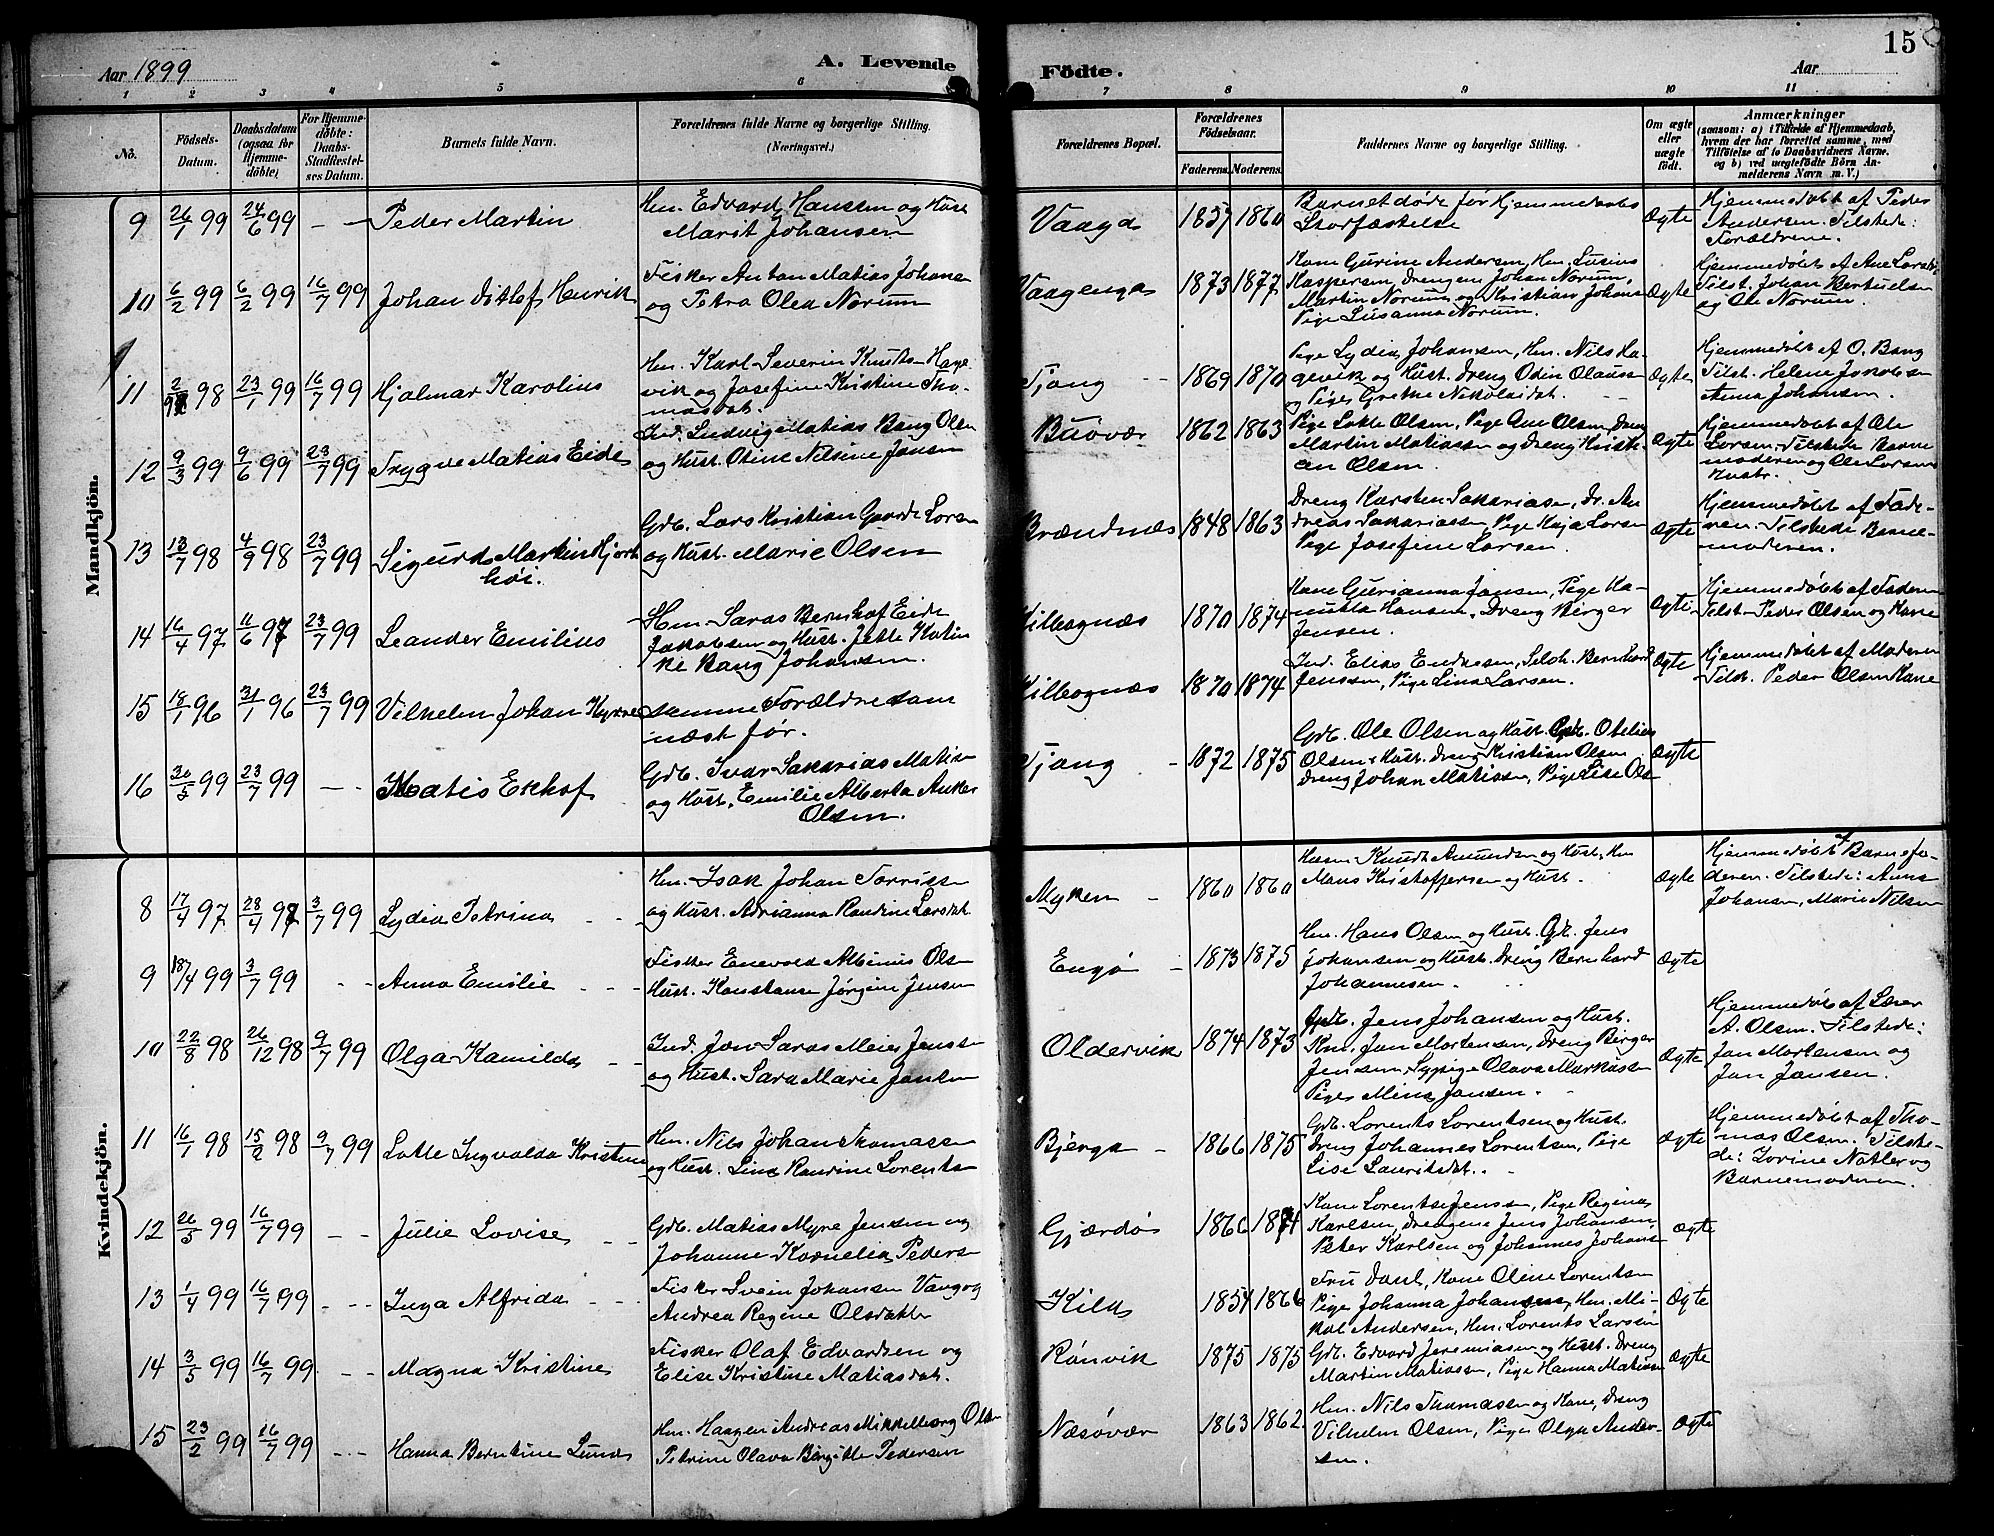 Aar 1899
A. Levende
Födte.
Aar
15
1 2 3 4 5 6 7 8 9 10 11
No.
Födsels-
Datum.
Daabsdatum
(ogsaa for
Hjemme-
döbte)
For Hjemme-
döbte:
Daabs-
Stadfæstel-
ses Datum.
Barnets fulde Navn.
Forældrenes fulde Navne og borgerlige Stilling.
(Næringsvei.)
Forældrenes Bopæl.
Forældrenes
Födselsaar.
Faderens. Moderens.
Faddernes Navne og borgerlige Stilling.
Om ægte
eller
uægte
födt.
Anmærkninger
(saasom: a) i Tilfælde af Hjemmedaab,
hvem der har forrettet samme, med
Tilföielse af to Daabsvidners Navne,
og b) ved uægtefödte Börn An-
melderens Navn m. V.)
Mandkjön.
9 26/1 99 24/6 99 - - Peder Martin
Hm. Edvard Hanssen og Hust
Marit Johansen
Vaaga 1857 1860
Barnet døde før Hjemmedaabs
Stadfæstelse
Ægte
Hjemmedøbt af Peder
Andersen. Tilstede:
Forældrene.
10 6/2 99 6/2 99 16/7 99 Johan Ditlef Henrik
Fisker Anton Matias Johans
og Petra Olea Norum
Vaagenga 1873 1877
Kone Gurine Andersen, Hm. Lusius
Kaspersen, Drengene Johan Norum,
Martin Norum og Kristian Johans
Pige Susanna Norum.
Ægte
Hjemmedøbt af Ane Larsd.
Tilst. Johan Bertuelsen
og Ole Norum.
11 2/9 98 23/1 99 16/7 99 Hjalmar Karolius
Hm. Karl Severin Knuts- Hage
vik og Josefine Kristine Tho-
masdat.
Tjong - - 1869 1870
Pige Lydia Johansen, Hm. Nils Ha-
gevik og Hust. Dreng Odin Olaussen
og Pige Grethe Nikolaidat.
Ægte
Hjemmedøbt af O. Bang
Tilst. Helene Jakobsen
Anna Johansen.
12 9/3 99 9/6 99 23/7 99 Trygve Matias Eide
Ind. Ludvig Matias Bang Olsen
og Hust. Otine Nilsine Jansen
Buøvær 1862 1863
Pige Lotte Olsen, Pige Ane Olsen, Dreng
Martin Matiassen og Dreng Kristi-
an Olsen.
Ægte
Hjemmedøbt af Ole
Larsen. Tilstede Barne
moderen og Ole Larsens
Hustr.
13 13/7 98 4/9 98 23/7 99 Sigurd Martin Hjort
høi.
Grdb. Lars Kristian Gaarde Larsen
og Hust. Marie Olsen
Brændnæs 1848 1863
Dreng Karsten Sakariasen, Dr. An
dreas Sakariassen, Pige Kaja Larsen
Pige Josefine Larsen.
Ægte
Hjemmedøbt af Fade-
ren. Tilstede Barne-
moderen.
14 16/4 97 11/6 97 23/7 99 Leander Emilius
Hm. Saras Bernhof Eide
Jakobsen og Hust. Jette Katin
ke Bang Johansen.
Killeognæs 1870 1874
Kone Gurianna Jansen, Pige Ha-
Hansen, Dreng Birger
Jensen.
Ægte
Hjemmedøbt af Faderen
Tilst. Peder Olsen og Kone
15 18/1 96 31/1 96 23/7 99 Vilhelm Johan
Samme Forældre som
næst før.
Killeognæs 1870 1874
Ind. Elias Endresen, Selvh. Bernhard
Jenssen, Pige Lina Larsen.
Ægte
Hjemmedøbt af Moderen
Tilst. Peder Olsen Kone
16 30/5 99 23/7 99 - - Matis Ekhof
Grdb. Ivar Sakarias Matis
og Hust. Emilie Alberta Anker
Olsen.
Tjong - 1872 1875
Grdb. Ole Olsen og Hust. Grdb. Otelius
Olsen & Hust. Dreng Kristian Olsen
Dreng Johan Matiassen, Pige Lise Ols
Ægte
Kvindekjön.
8 17/4 97 28/4 97 3/7 99 Lydia Petrina - -
Hm. Isak Johan Torriss
og Hust. Adrianna Randine Larsdat.
Myken - 1860 1860
Husm. Knudt Amundsen og Hust., Hm
Mons Kristoffersen og Hust.
Ægte
Hjemmedøbt af Barnefa-
deren. Tilstede: Anna
Johansen, Marie Nilsen
9 18/4 99 3/7 99 - - Anna Emilie - - -
Fisker Enevold Albinus Olsen
Hust. Konstanse Jørgine Jensen
Engø - 1873 1875
Hm. Hans Olsen og Hust. Grdb. Jens
Johansen og Hust. Dreng Bernhard
Johannesen.
Ægte
10 22/8 98 26/12 98 9/7 99 Olga Kamilda - -
Ind. Jan Saras Meier Jenss
og Hust. Sara Marie Jansen
Oldervik 1874 1873
Grdb. Jens Johansen og Hust.
Km. Jan Mortensen, Dreng Birger
Jensen, Sypige Olava Markussen
Pige Mina Jansen.
Ægte
Hjemmedøbt af Lærer
A. Olsen. Tilstede:
Jan Mortensen og
Jan Jansen.
11 16/1 98 15/2 98 9/7 99 Lotte Ingvalda Kristine
Hm. Nils Johan Thomassen
og Hust. Lina Randine Lorents
Bjerga - 1866 1875
Grdb. Lorents Lorentsen og Hust
Dreng Johannes Lorentsen, Pige
Lise Lauritsdat.
Ægte
Hjemmedøbt af Tho-
mas Olsen. Tilste-
de: Jorine Natler og
Barnemoderen.
12 26/5 99 16/7 99 - - Julie Lovise - -
Grdb. Matias Myre Jensen og
Johanne Kornelia Peders
Gjærdø 1866 1871
Kone Lorentse Jenssen, Pige Regina
Karlsen, Drengene Jens Johansen,
Peter Karlsen og Johannes Johans
Ægte
13 1/4 99 16/7 99 - - - Inga Alfrida - -
Fisker Svein Johansen Vang og
Andrea Regine Olsdatter
Kila 1854 1866
Fru Dahl, Kone Oline Lorentsen
Pige Johanna Johansen, Hm. Mi-
kal Andersen, Hm. Lorents Larsen
Ægte
14 3/5 99 16/7 99 - - - Magna Kristine
Fisker Olaf Edvardsen og
Elise Kristine Matiasdat.
Rønvik 1875 1875
Grdb. Edvard Jeremiasen og Hust. Dreng
Martin Matiassen, Pige Hanna Matiass
Ægte
15 23/2 99 16/7 99 - - - Hanna Berntine Lunds
Hm. Haagen Andreas Mikkelborg Olsen
Petrine Olava Birgitte Pedersen
Næsøvær 1863 1862.
Hm. Nils Thomassen og Kone, Dreng
Vilhelm Olsen, Pige Olga Ander-
sen.
Ægte